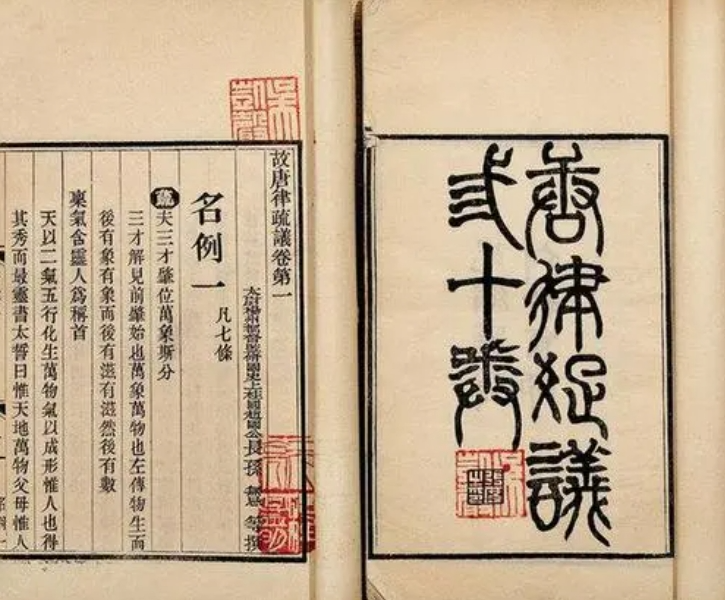 唐律疏議
弎十卷
吳凱聲
故唐律疏議卷第一
太尉揚州都督監修國史上柱國趙國公長孫 無忌 等撰
名例一 凡七條
疏 夫三才肇位萬象斯分
三才解見前肇始也萬象萬物也左傳物生而
後有象有象而後有滋有滋然後有數
稟氣含靈人爲稱首
天以二氣五行化生萬物氣以成形惟人也得
其秀而最靈書太誓曰惟天地萬物父母惟人